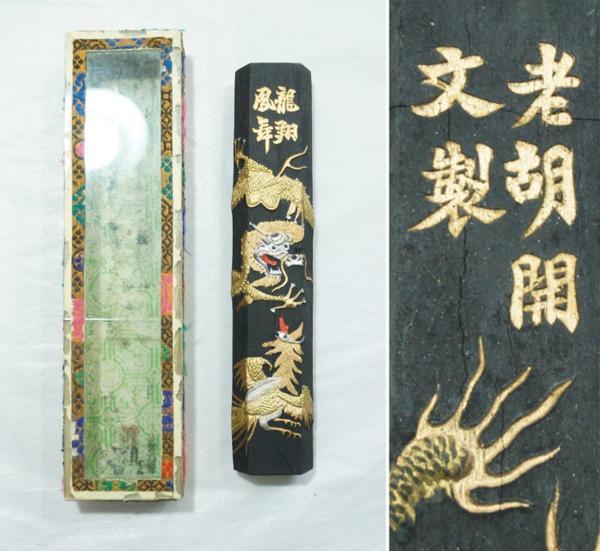 龍翔
鳳舞
老胡開
文製